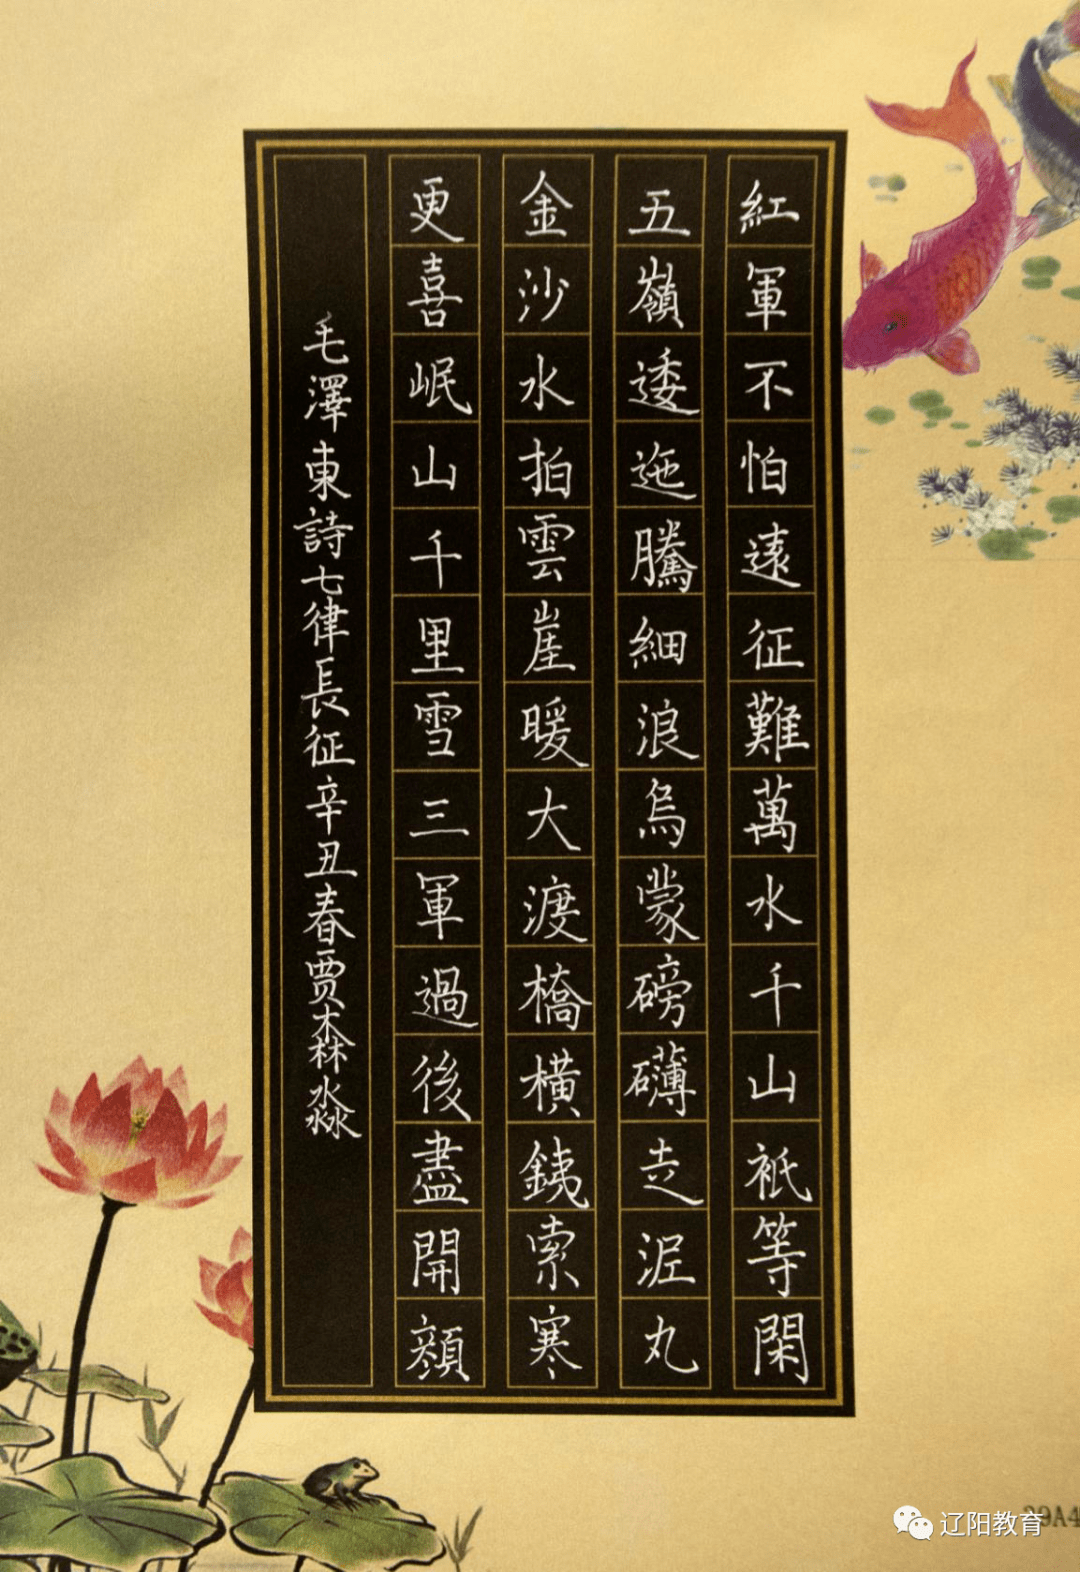 紅軍不怕遠征難萬水千山衹等閑
五嶺逶迤騰細浪烏蒙磅礴走泥丸
金沙水拍雲崖暖大渡橋橫銕索寒
更喜岷山千里雪三軍過後盡開顔
毛澤東詩七律長征辛丑春贾森淼
辽阳教育